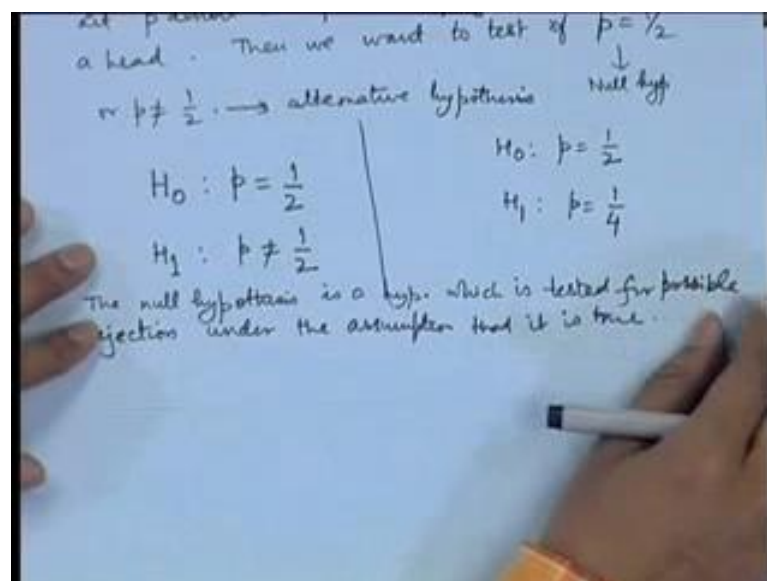 Let p
a head. Then we want to test if p = 1/2
↓
or p ≠ 1/2. → alternative hypothesis Null hyp
H₀ : p = 1/2
H₁ : p ≠ 1/2
H₀: p = 1/2
H₁: p = 1/4
The null hypothesis is a hyp. which is tested for possible
rejection under the assumption that it is true.